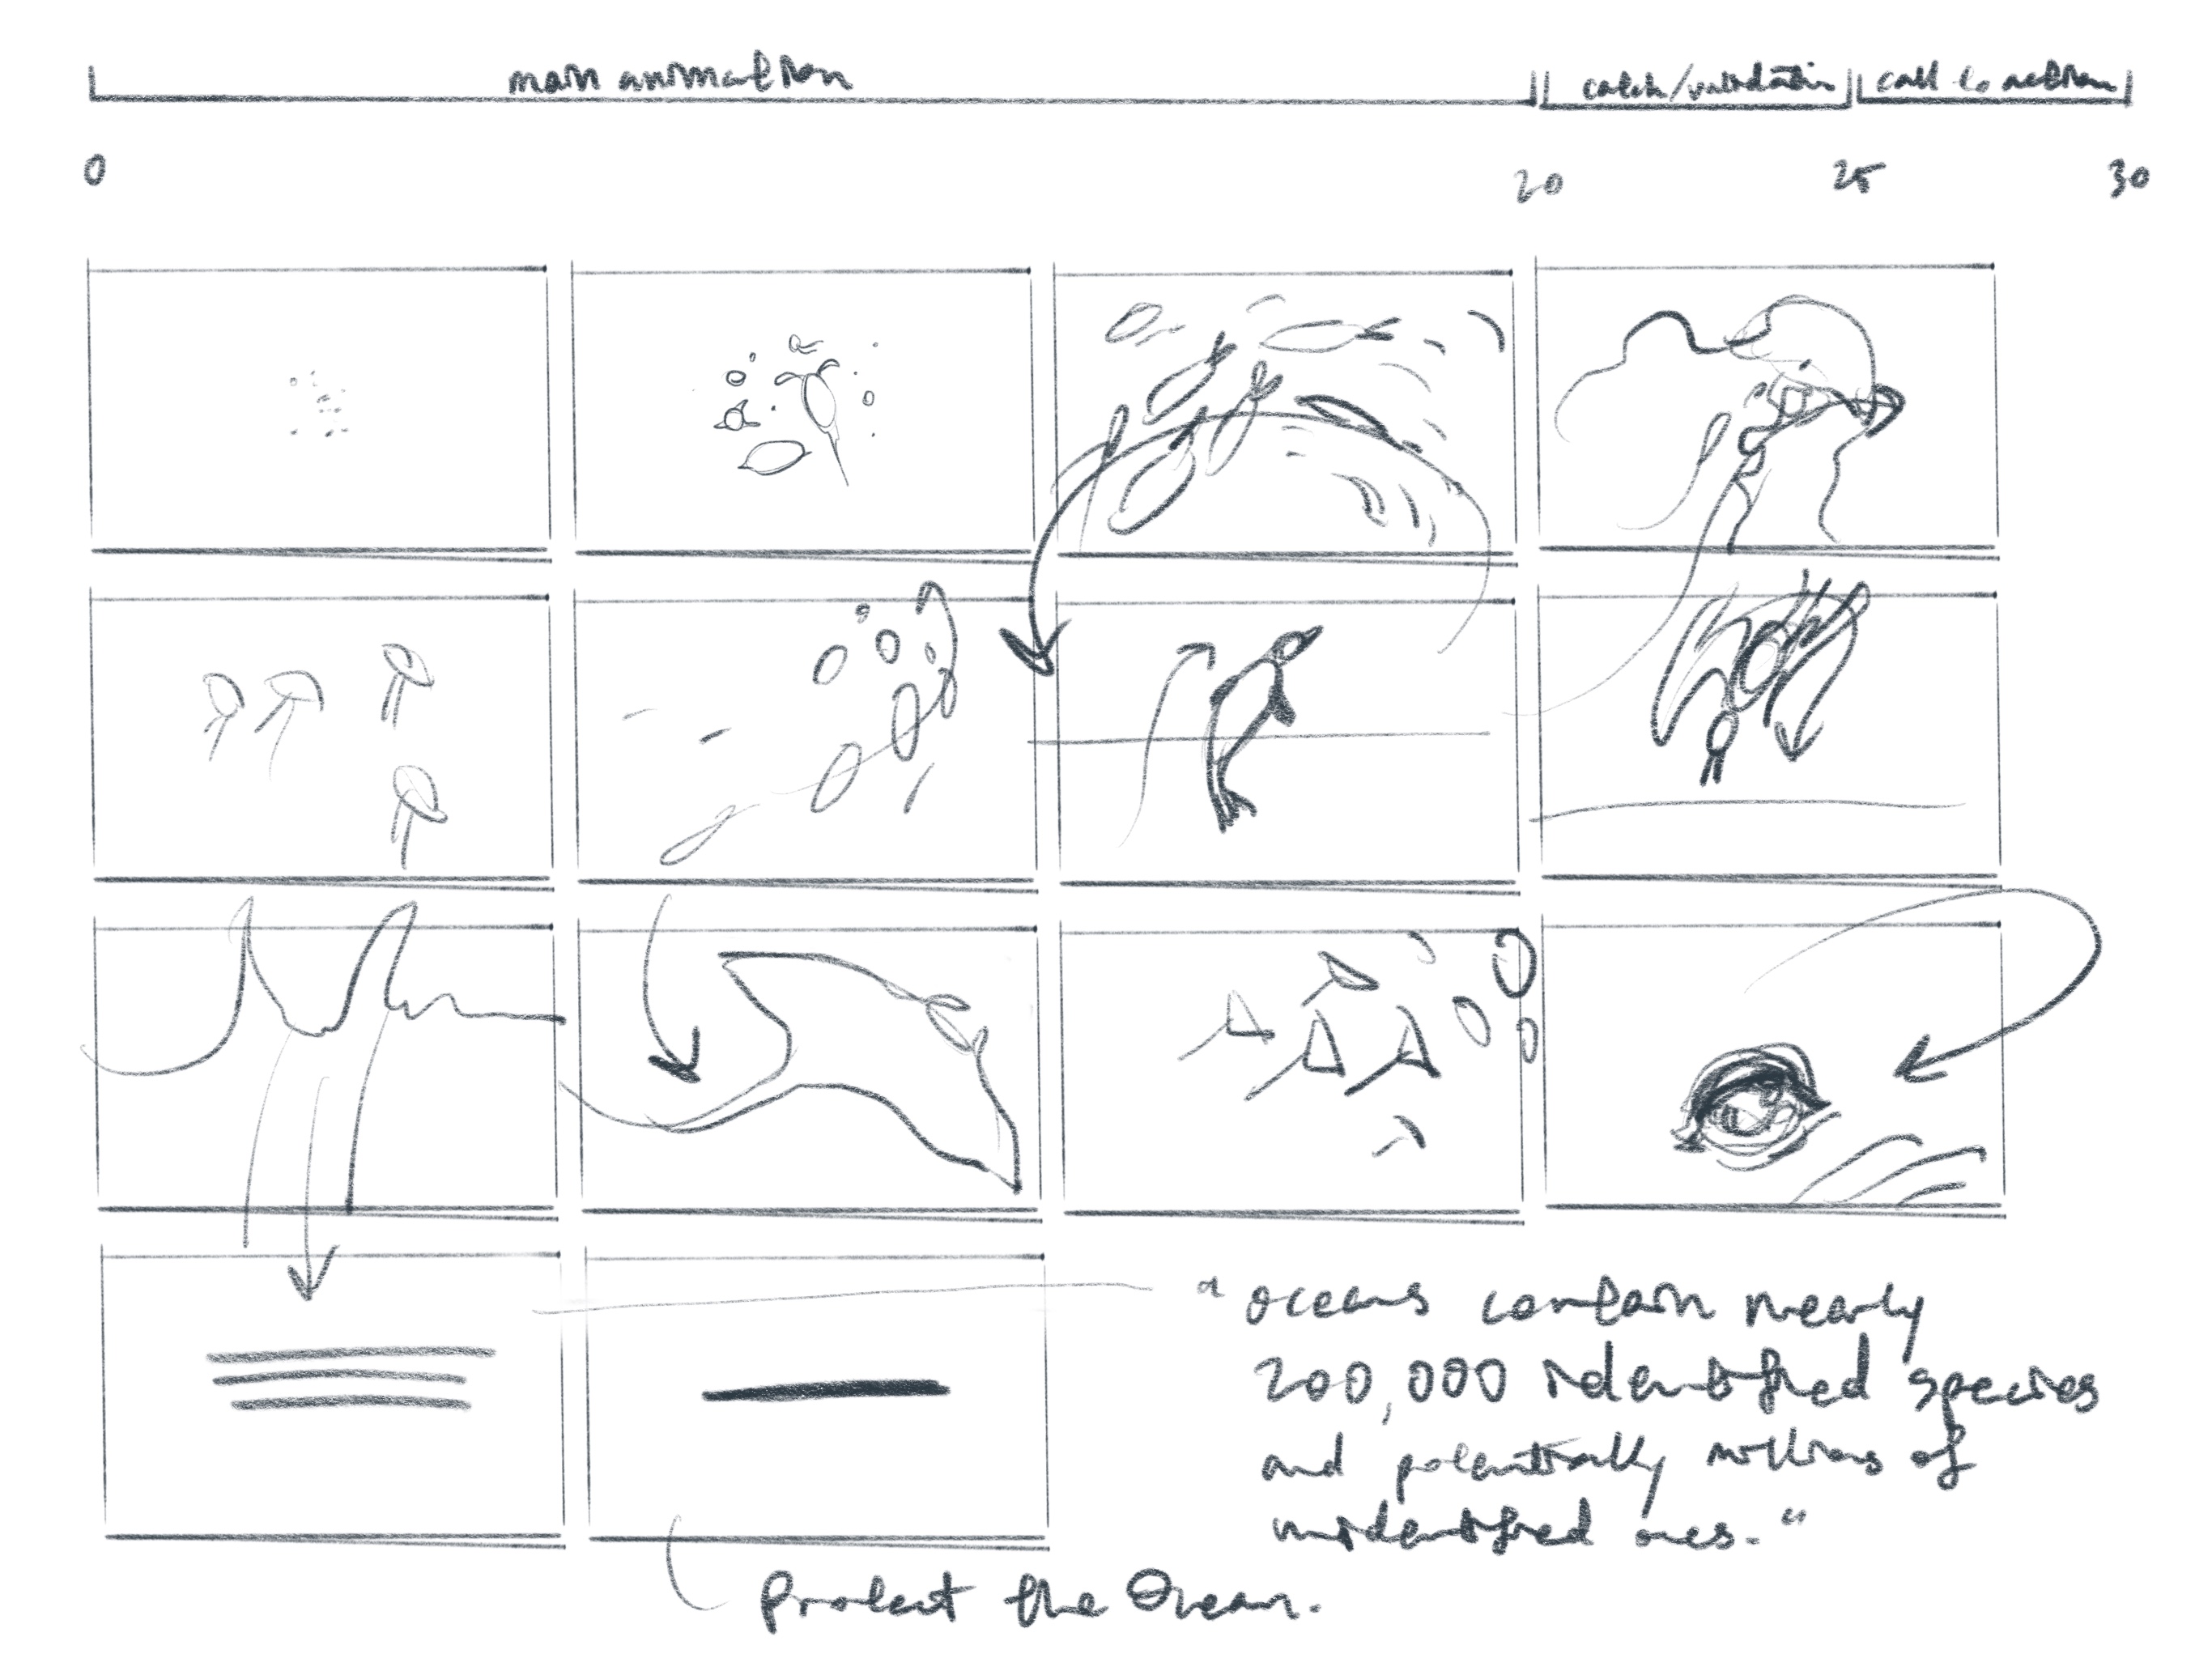 main animation
catch/validation
call to action
0
20
25
30
"oceans contain nearly
200,000 identified species
and potentially millions of
unidentified ones."
Protect the Ocean.